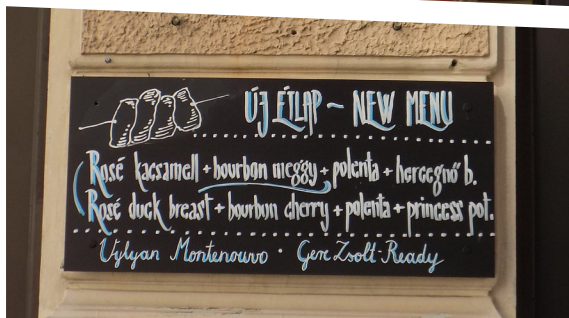 ÚJ ÉTLAP ~ NEW MENU
Rosé kacsamell + bourbon meggy + polenta + hercegnő b.
Rosé duck breast + bourbon cherry + polenta + princess pot.
Vylyan Montenouvo • Gere Zsolt-Ready